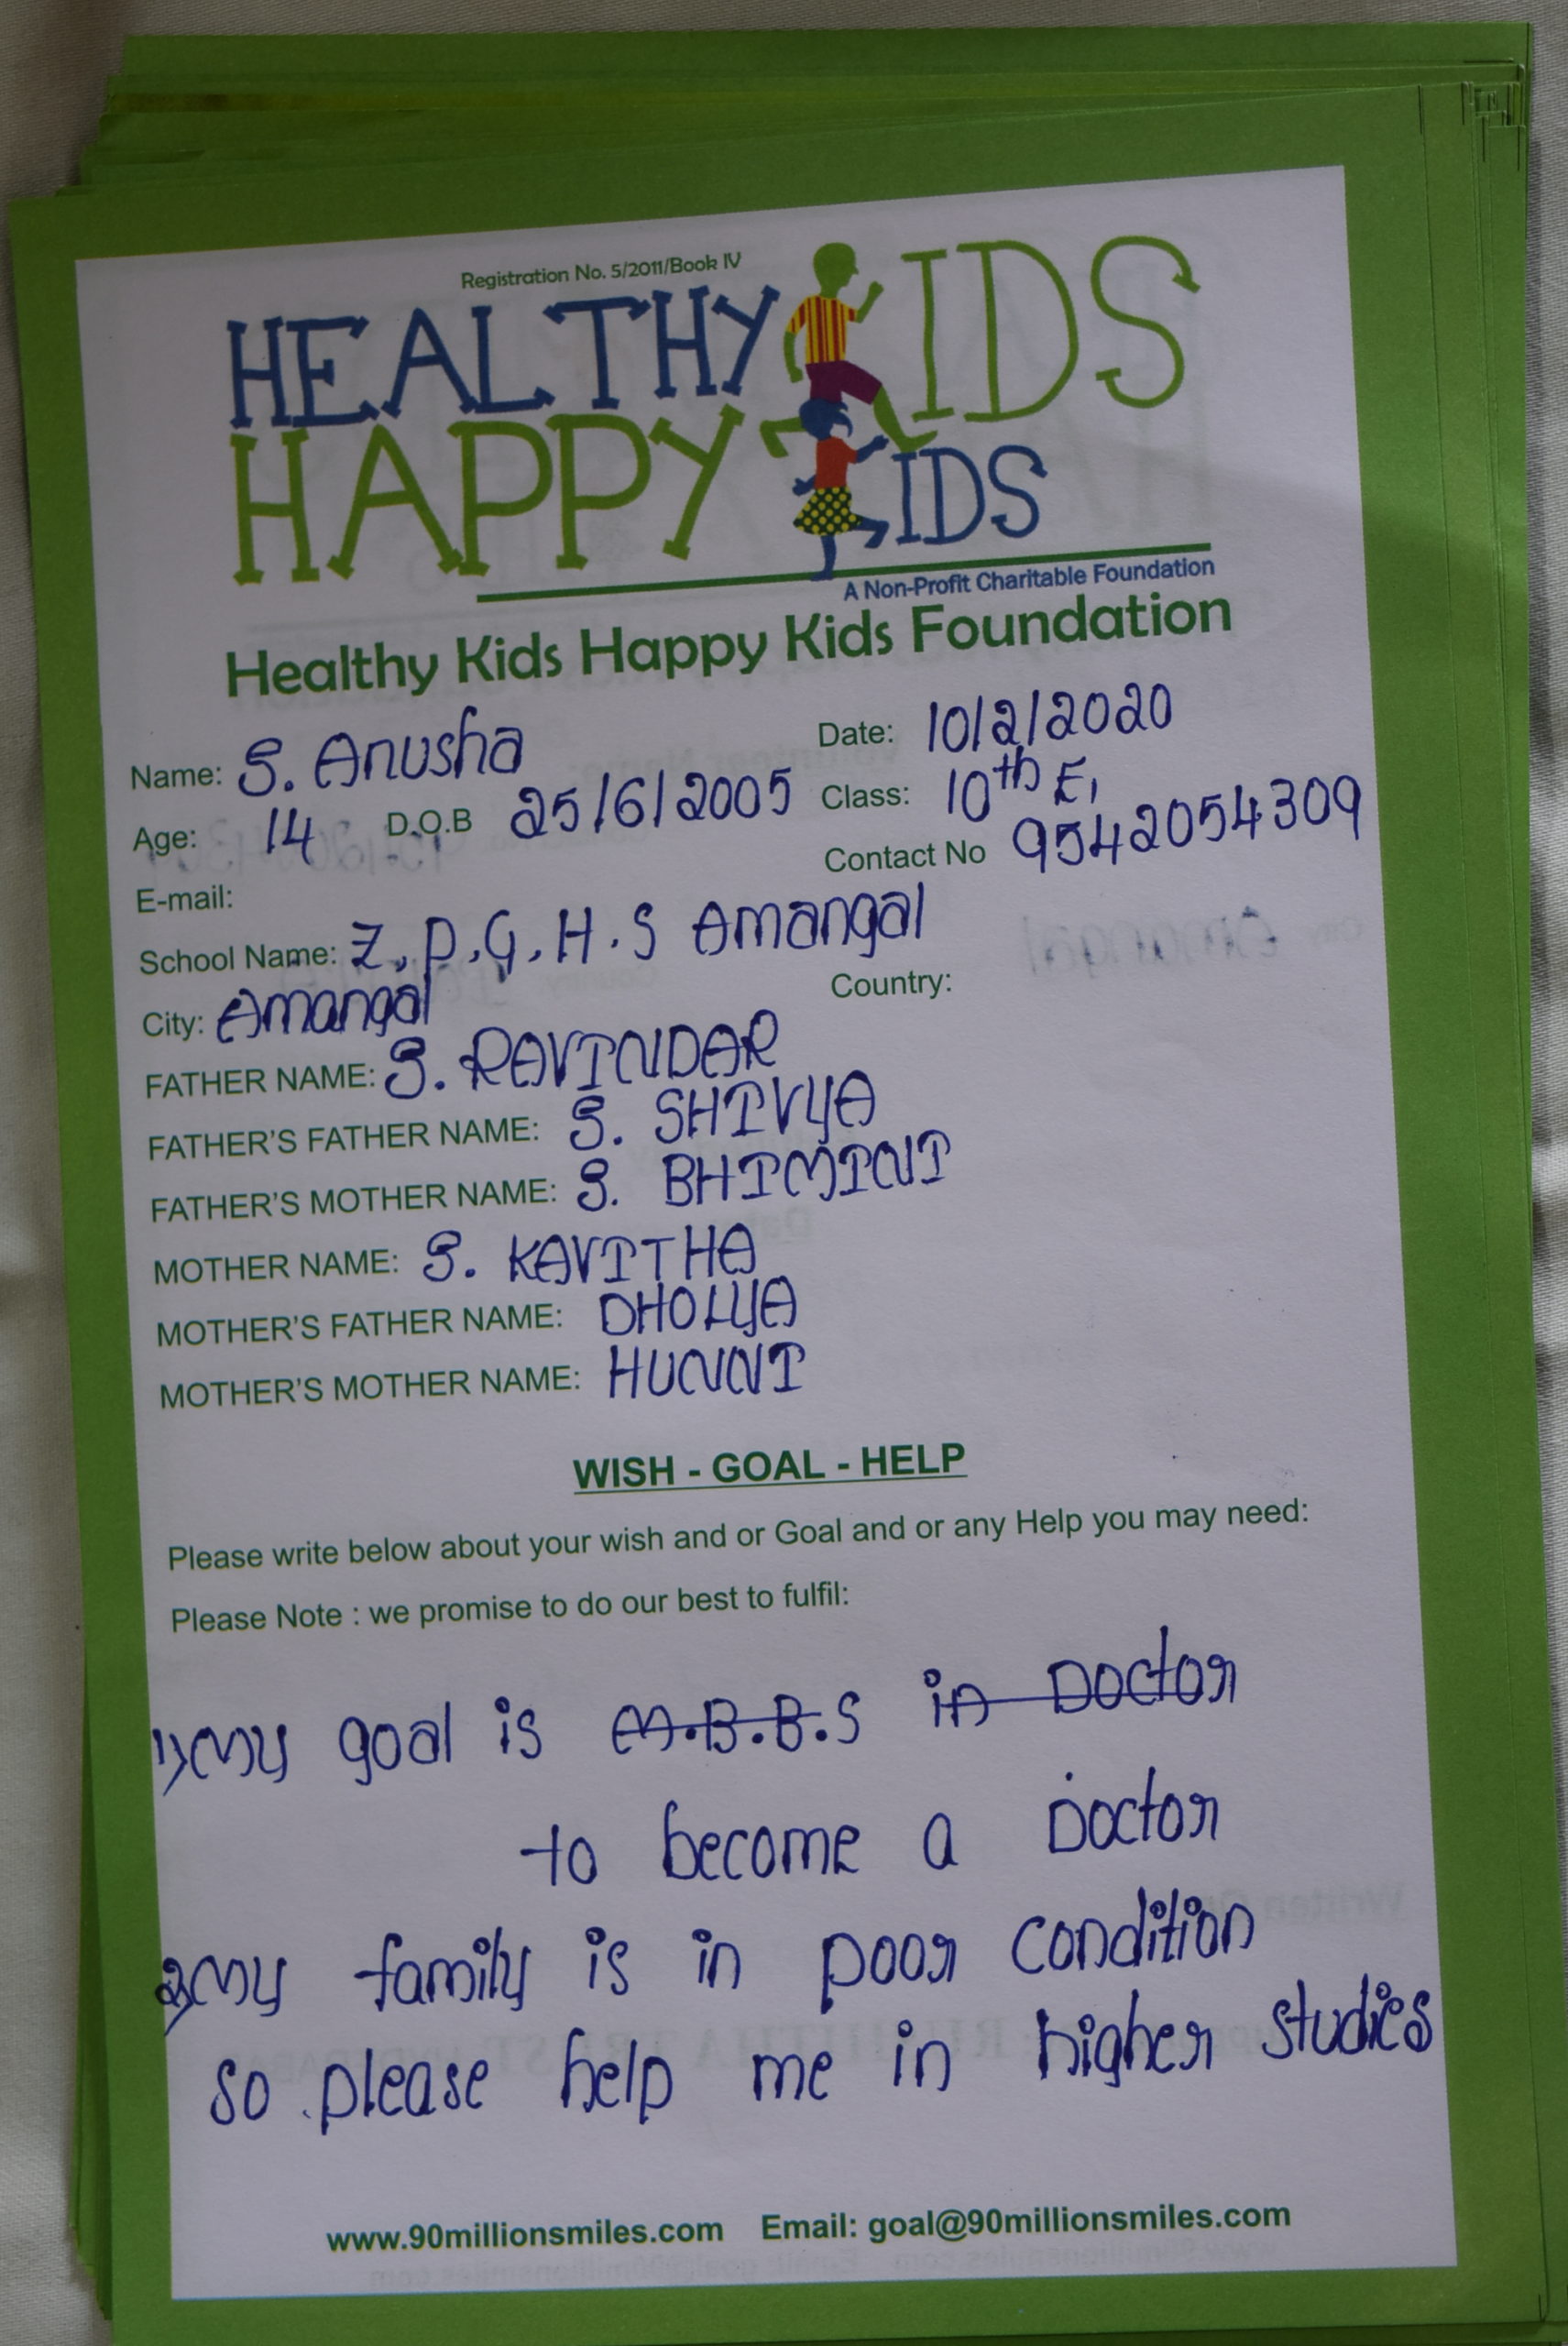 Registration No. 5/2011/Book IV
HEALTHY KIDS
HAPPY KIDS
A Non-Profit Charitable Foundation
Healthy Kids Happy Kids Foundation
Name: S. Anusha Date: 10/2/2020
Age: 14 D.O.B 25/6/2005 Class: 10th E,
E-mail: Contact No 9542054309
School Name: Z.P.G.H.S Amangal
City: Amangal Country:
FATHER NAME: S. RAVINDAR
FATHER'S FATHER NAME: S. SHIVYA
FATHER'S MOTHER NAME: S. BHIMINI
MOTHER NAME: S. KAVITHA
MOTHER'S FATHER NAME: DHOLYA
MOTHER'S MOTHER NAME: HUNNI
WISH - GOAL - HELP
Please write below about your wish and or Goal and or any Help you may need:
Please Note : we promise to do our best to fulfil:
1) My goal is M.B.B.S in Doctor
to become a Doctor
2) My family is in poor condition
so please help me in higher studies
www.90millionsmiles.com Email: goal@90millionsmiles.com